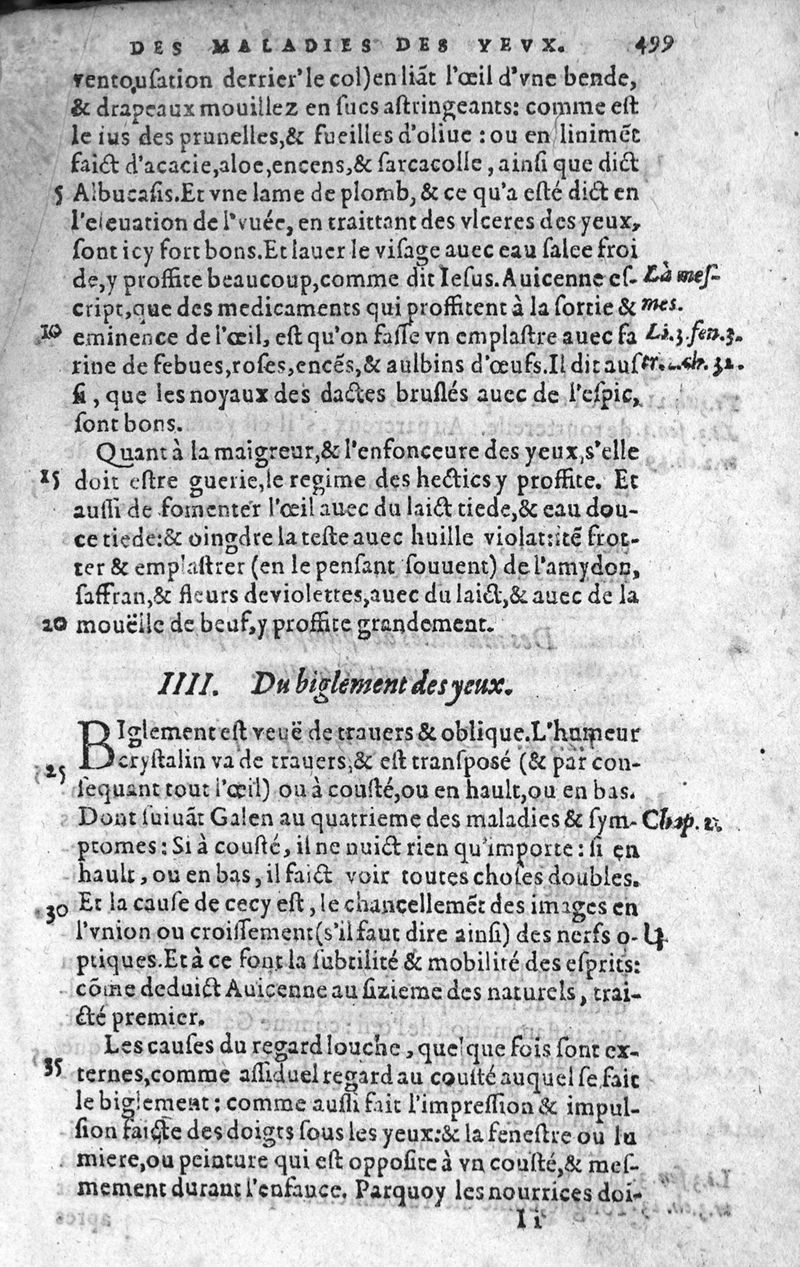 DES MALADIES DES YEVX. 499
ventouſation derrier'le col)en liãt l'œil d'vne bende,
& drapeaux mouillez en ſucs aſtringeants: comme eſt
le ius des prunelles,& fueilles d'oliue : ou en linimẽt
faict d'acacie,aloe,encens,& ſarcacolle, ainſi que dict
5 Albucaſis.Et vne lame de plomb, & ce qu'a eſté dict en
l'eleuation de l'vuée, en traittant des vlceres des yeux,
ſont icy fort bons.Et lauer le viſage auec eau ſalee froi
de,y proffite beaucoup,comme dit Ieſus. Auicenne eſ- La meſ-
cript,que des medicaments qui proffitent à la ſortie & mes.
10 eminence de l'œil, eſt qu'on faſſe vn emplaſtre auec fa Li.3.fen.3.
rine de febues,roſes,encẽs,& aulbins d'œufs.Il dit auſ ch. 32.
ſi, que les noyaux des dactes bruſlés auec de l'eſpic,
ſont bons.
Quant à la maigreur,& l'enfonceure des yeux,s'elle
15 doit eſtre guerie,le regime des hectics y proffite. Et
auſſi de fomenter l'œil auec du laict tiede,& eau dou-
ce tiede:& oingdre la teſte auec huille violat:itẽ frot-
ter & emplaſtrer (en le penſant ſouuent) de l'amydon,
ſaffran,& fleurs de violettes,auec du laict,& auec de la
20 mouëlle de beuf,y proffite grandement.
IIII. Du biglement des yeux.
BIglement eſt veuë de trauers & oblique.L'humeur
25 cryſtalin va de trauers,& eſt tranſpoſé (& par con-
ſequant tout l'œil) ou à couſté,ou en hault,ou en bas.
Dont ſuiuãt Galen au quatrieme des maladies & ſym- Chap. 2.
ptomes: Si à couſté, il ne nuict rien qu'importe: ſi en
hault, ou en bas, il faict voir toutes choſes doubles.
30 Et la cauſe de cecy eſt, le chancellemẽt des images en
l'vnion ou croiſſement(s'il faut dire ainſi) des nerfs o-
ptiques.Et à ce font la ſubtilité & mobilité des eſprits:
cõme deduict Auicenne au ſizieme des naturels, trai-
cté premier.
Les cauſes du regard louche, quelque fois ſont ex-
35 ternes,comme aſſiduel regard au couſté auquel ſe fait
le biglement: comme auſſi fait l'impreſſion & impul-
ſion faicte des doigts ſous les yeux:& la feneſtre ou lu
miere,ou peinture qui eſt oppoſite à vn couſté,& meſ-
mement durant l'enfance. Parquoy les nourrices doi-
Ii